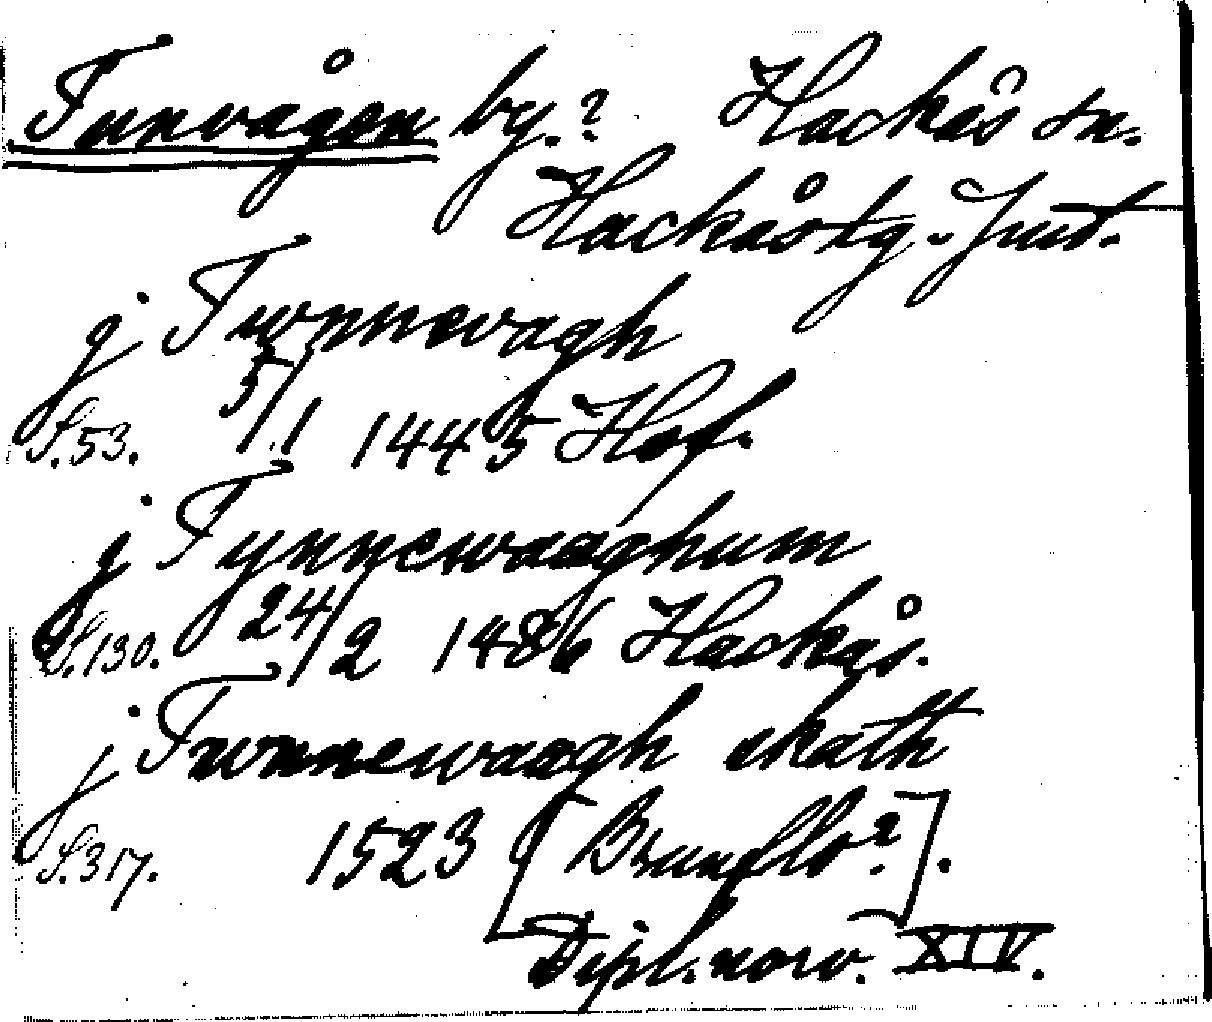 Funvågen by.? Hackås sn.
Hackås tg. Jmt.
j Fwnnevagh
S.53. 5/1 1445 Hof.
j Fynnewaaghum
S.130. 24/2 1486 Hackås.
j Fwnnewaagh skath
S.317. 1523 [Brunflo?].
Dipl. norv. XIV.